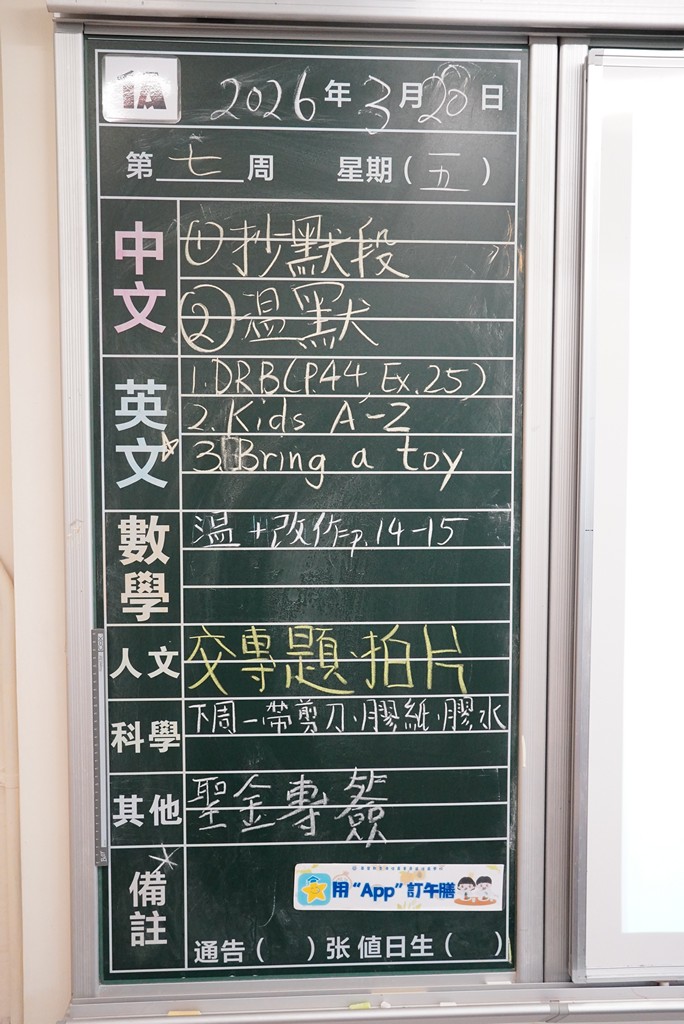 1A
2026年3月20日
第七周 星期(五)
中文
①抄默段
②溫默
英文
1. DRB(P.44, Ex.25)
2. Kids A-Z
☆3. Bring a toy
數學
溫+改作p.14-15
人文
交專題、拍片
科學
下周一帶剪刀、膠紙、膠水
其他
聖金專簽
備註
用“App”訂午膳
通告( )张 值日生( )